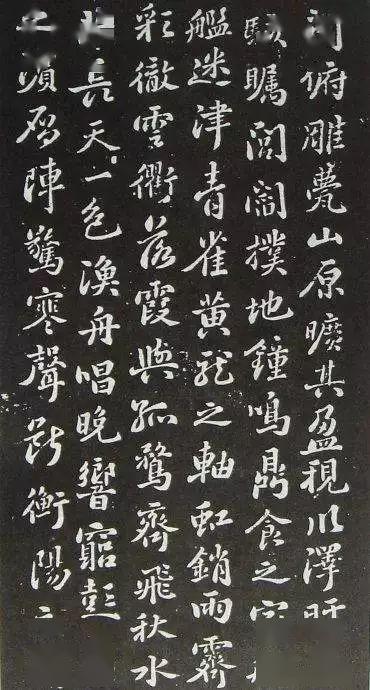 俯雕甍山原曠其盈視川澤
矚閭閻撲地鍾鳴鼎食之
艦迷津青雀黃龍之軸虹銷雨霽
彩徹雲衢落霞與孤鶩齊飛秋水
長天一色漁舟唱晚響窮彭
濱鴈陣驚寒聲斷衡陽